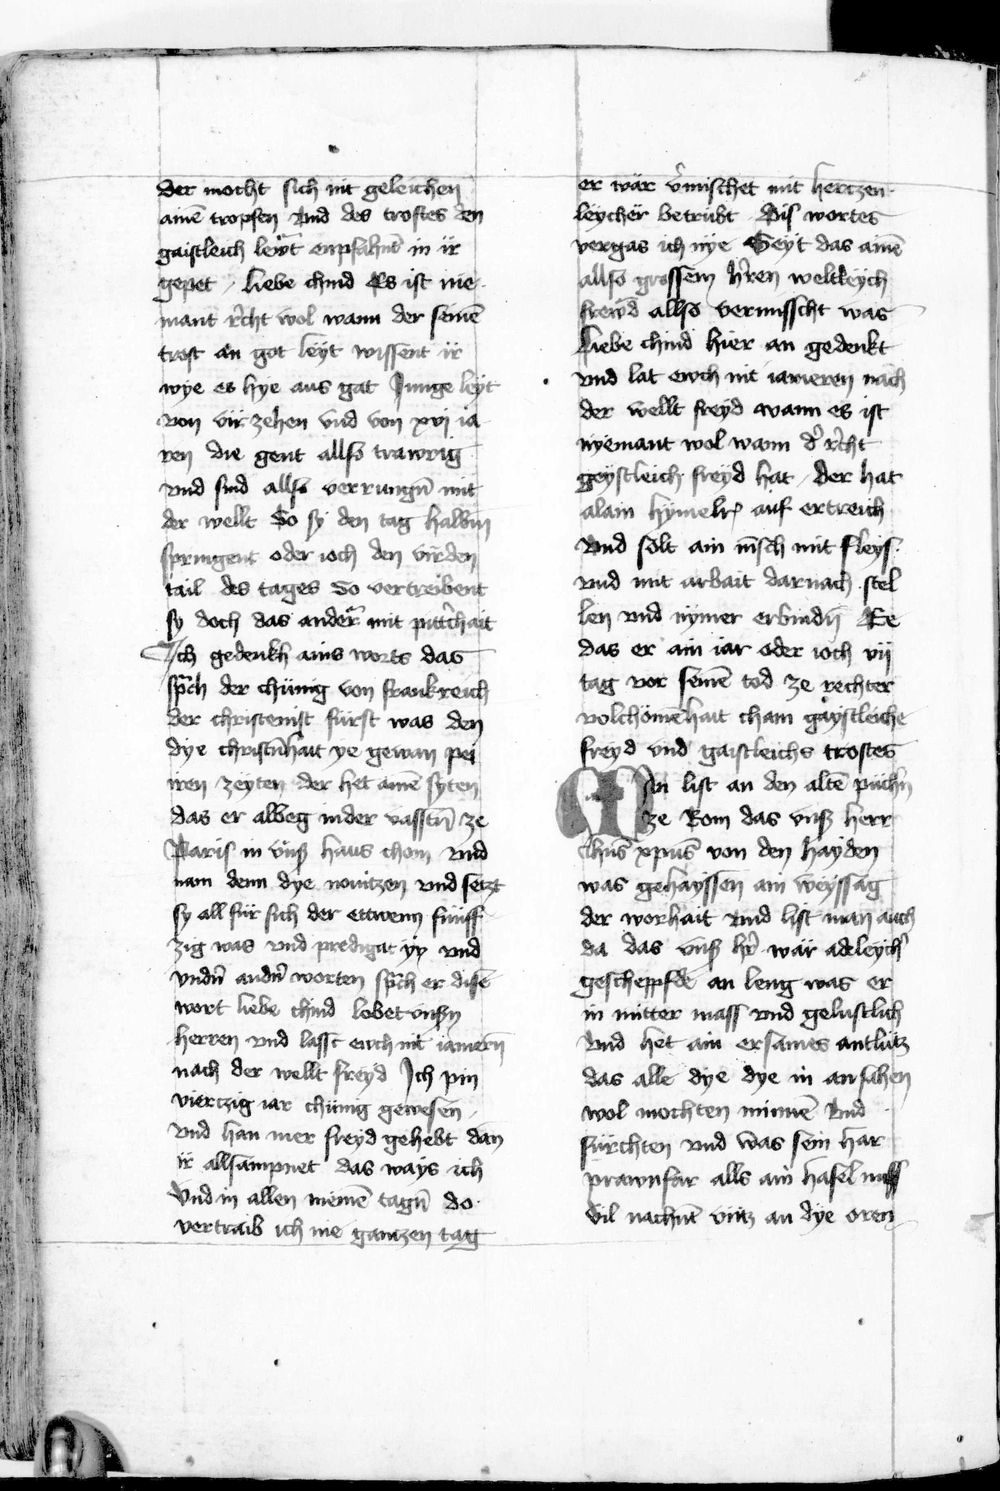 der mocht sich nit geleichen
ainē tropfen vnd des trostes den
gaistleich leẅt enpfahnt in ir
gepet / liebe chind Es ist nie
mant rͤcht wol wann der seinē
trost an got leyt wissent ir
wye es hye aus gat Junge leyt
von vir zehen vnd von xvj ia
ren die gent allso trawrig
vnd sind allso verrungn̄ mit
der wellt So sy den tag halbm
springent oder ioch den virden
tail des tages So vertreibent
sy doch das ander mit pittˀchait
Ich gedenkh ains worts das
sprͣch der chünig von frankreich
der christenist fürst was den
dye christn̄hait ye gewan pei
iren zeyten der het ainē syten
das er albeg in der vasstn̄ ze
Paris in vnsˀ haus chom vnd
nam denn dye nouitzen vnd setzt
sy all für sich der ettwenn fünff
zig was vnd predigat yn vnd
vndˀn andˀn worten sprͣch er disē
wort liebe chind lobet vnsˀn
herren vnd lasst ewch nit iamern
nach der wellt freyd Ich pin
vierczig iar chünig gewesen /
vnd han mer freyd gehebt dan
ir allsampnet das ways ich
vnd in allen meinē tagn̄ do
vertraib ich nie gantzen tag
er wär vˀmischet mit hertzen
leycher betrübt . Dis wortes
vergas ich nye Seyt das ainē
allso grossem hˀren weltleych
freyd allso vermisscht was
Liebe chind hier an gedenkt
vnd lat ewch nit iameren nach
der wellt freyd wann es ist
nyemant wol wann dˀ rͤcht
geystleich freyd hat / der hat
alain hymelrˀ auf ertreich
Vnd solt ain mēsch mit fleys
vnd mit arbait darnach stel
len vnd nymer erbindn̄ Ee
das er ain iar oder ioch vij
tag vor seinē tod ze rechter
volchömēhait cham gaystleiche
freyd vnd gaistleichs trostes
Man list an den altē püchˀn
ze Rom das vnsˀ herr
ihūs xpūs von den hayden
was gehayssen ain weyssag
der worhait vnd list man auch
da das vnsˀ hˀr wär adeleychˀ
gescheppfde an leng was er
in mitter mass vnd gelustlich
Vnd het ain ersames antlütz
das alle dye dye in ansahen
wol mochten minnē vnd
fürchten vnd was sein har
prawnfar alls ain hasel nuss
vil nachnt vntz an dye oren